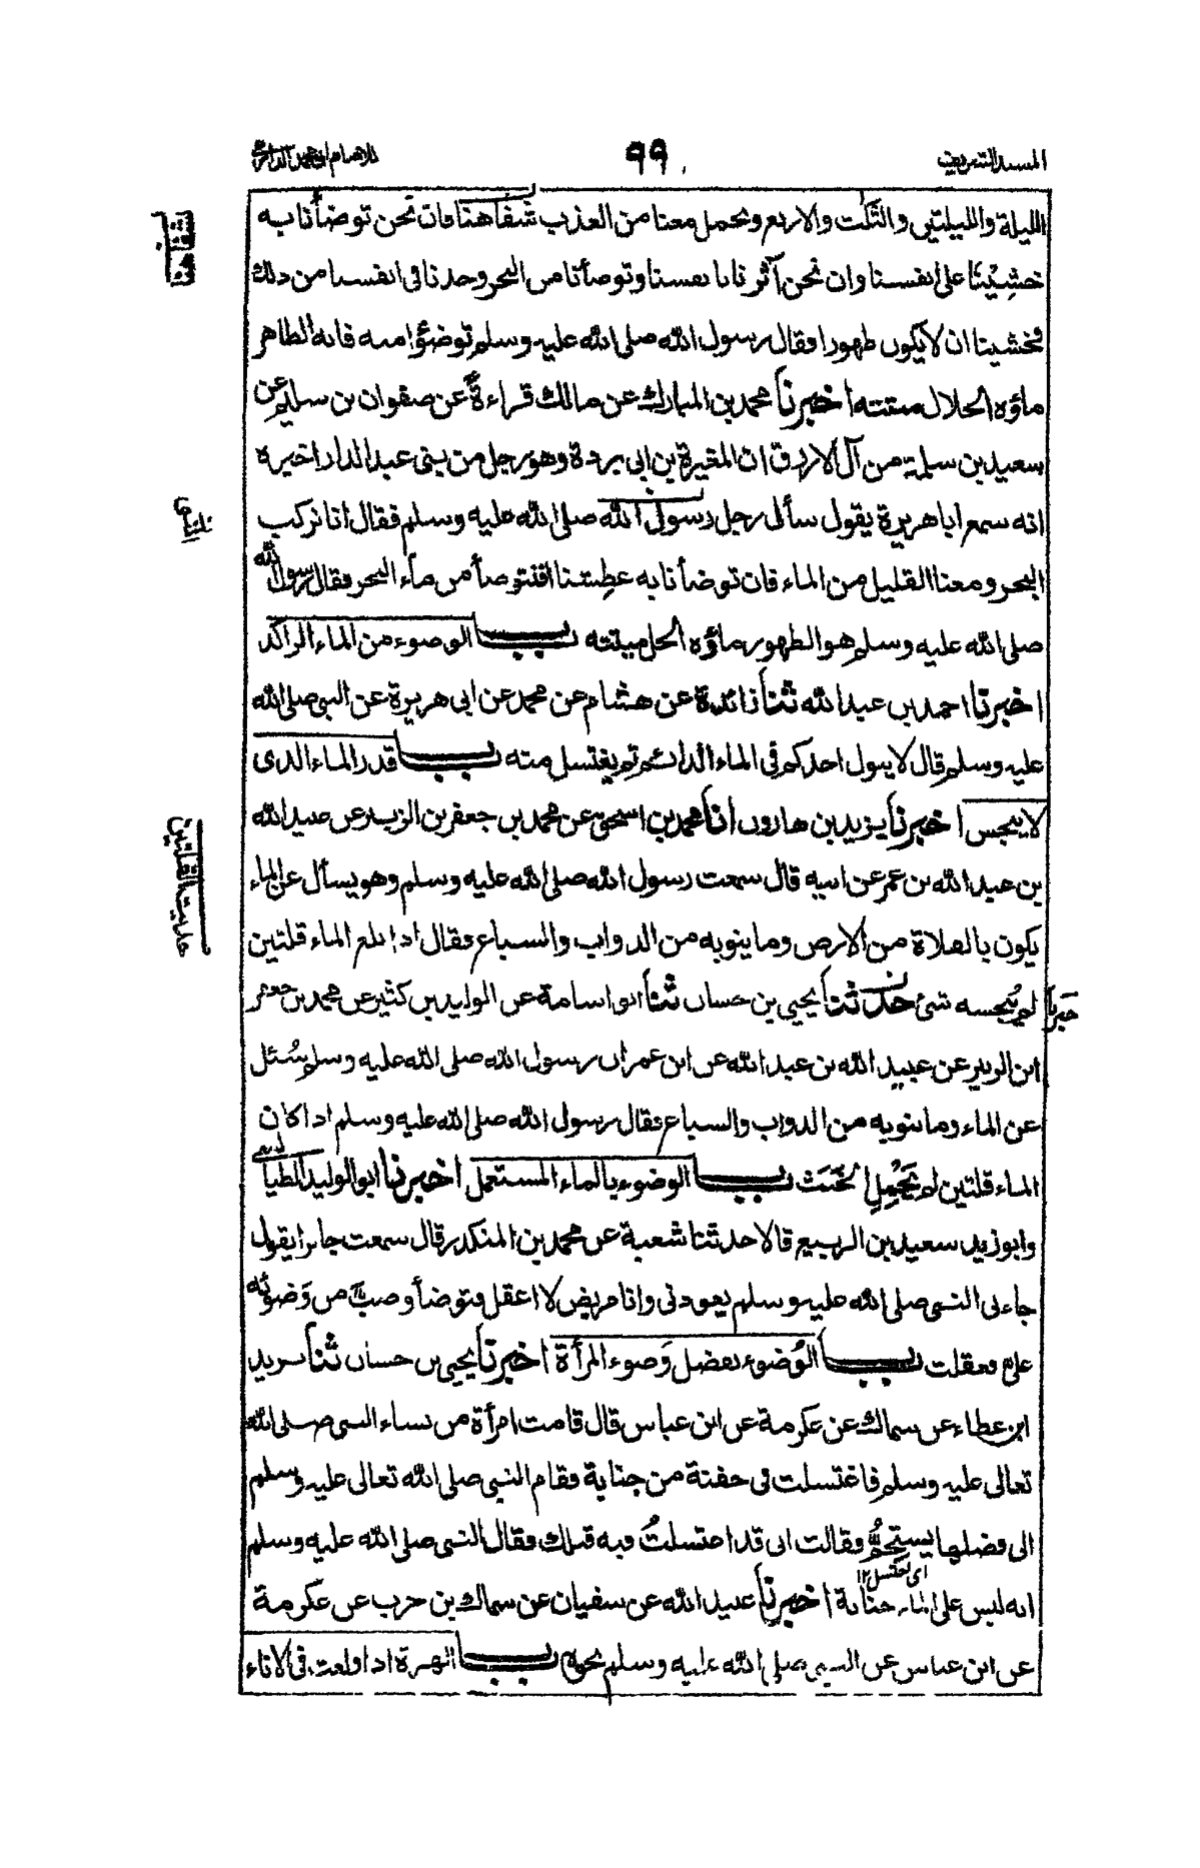 المسند الشريف
٩٩
للامام ابى محمد الدارمى
الليلة والليلتين والثلث والاربع ونحمل معنا من العذب لشفاهنا فان نحن توضأنا به
خشينا على انفسنا وان نحن آثرنا بانفسنا وتوضأنا من البحر وجدنا فى انفسنا من ذلك
فخشينا ان لا يكون طهورا فقال رسول الله صلى الله عليه وسلم توضؤا منه فانه الطاهر
ماؤه الحلال ميتته اخبرنا محمد بن المبارك عن مالك قراءة عن صفوان بن سليم عن
سعيد بن سلمة من آل الازرق ان المغيرة بن ابى بردة وهو رجل من بنى عبد الدار اخبره
انه سمع ابا هريرة يقول سأل رجل رسول الله صلى الله عليه وسلم فقال انا نركب
البحر ومعنا القليل من الماء فان توضأنا به عطشنا افنتوضأ من ماء البحر فقال رسول الله
صلى الله عليه وسلم هو الطهور ماؤه الحل ميتته باب الوضوء من الماء الراكد
اخبرنا احمد بن عبد الله ثنا زائدة عن هشام عن محمد عن ابى هريرة عن النبى صلى الله
عليه وسلم قال لا يبول احدكم فى الماء الدائم ثم يغتسل منه باب قدر الماء الذى
لا ينجس اخبرنا يزيد بن هارون انا محمد بن اسحق عن محمد بن جعفر بن الزبير عن عبيد الله
بن عبد الله بن عمر عن ابيه قال سمعت رسول الله صلى الله عليه وسلم وهو يسأل عن الماء
يكون بالفلاة من الارض وما ينوبه من الدواب والسباع فقال اذا بلغ الماء قلتين
لم ينجسه شئ حدثنا يحيى بن حسان ثنا ابو اسامة عن الوليد بن كثير عن محمد بن جعفر
ابن الزبير عن عبيد الله بن عبد الله عن ابن عمر ان رسول الله صلى الله عليه وسلم سُئل
عن الماء وما ينوبه من الدواب والسباع فقال رسول الله صلى الله عليه وسلم اذا كان
الماء قلتين لم يَحْمِلِ الخَبَثَ باب الوضوء بالماء المستعمل اخبرنا ابو الوليد الطيالسى
وابو زيد سعيد بن الربيع قالا حدثنا شعبة عن محمد بن المنكدر قال سمعت جابرا يقول
جاءنى النبى صلى الله عليه وسلم يعودنى وانا مريض لا اعقل فتوضأ وصبَّ من وَضوئه
علىّ فعقلت باب الوُضوء بفضل وَضوء المرأة اخبرنا يحيى بن حسان ثنا يزيد
ابن عطاء عن سماك عن عكرمة عن ابن عباس قال قامت امرأة من نساء النبى صلى الله
تعالى عليه وسلم فاغتسلت فى جفنة من جنابة فقام النبى صلى الله تعالى عليه وسلم
الى فضلها يستحمُّ فقالت انى قد اغتسلتُ فيه قبلك فقال النبى صلى الله عليه وسلم
اى يغتسل ١٢
انه ليس على الماء جنابة اخبرنا عبيد الله عن سفيان عن سماك بن حرب عن عكرمة
عن ابن عباس عن النبى صلى الله عليه وسلم نحوه باب الهرة اذا ولغت فى الاناء
حديث القلتين